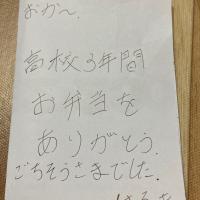 おかん、
高校3年間
お弁当を
ありがとう。
ごちそうさまでした。